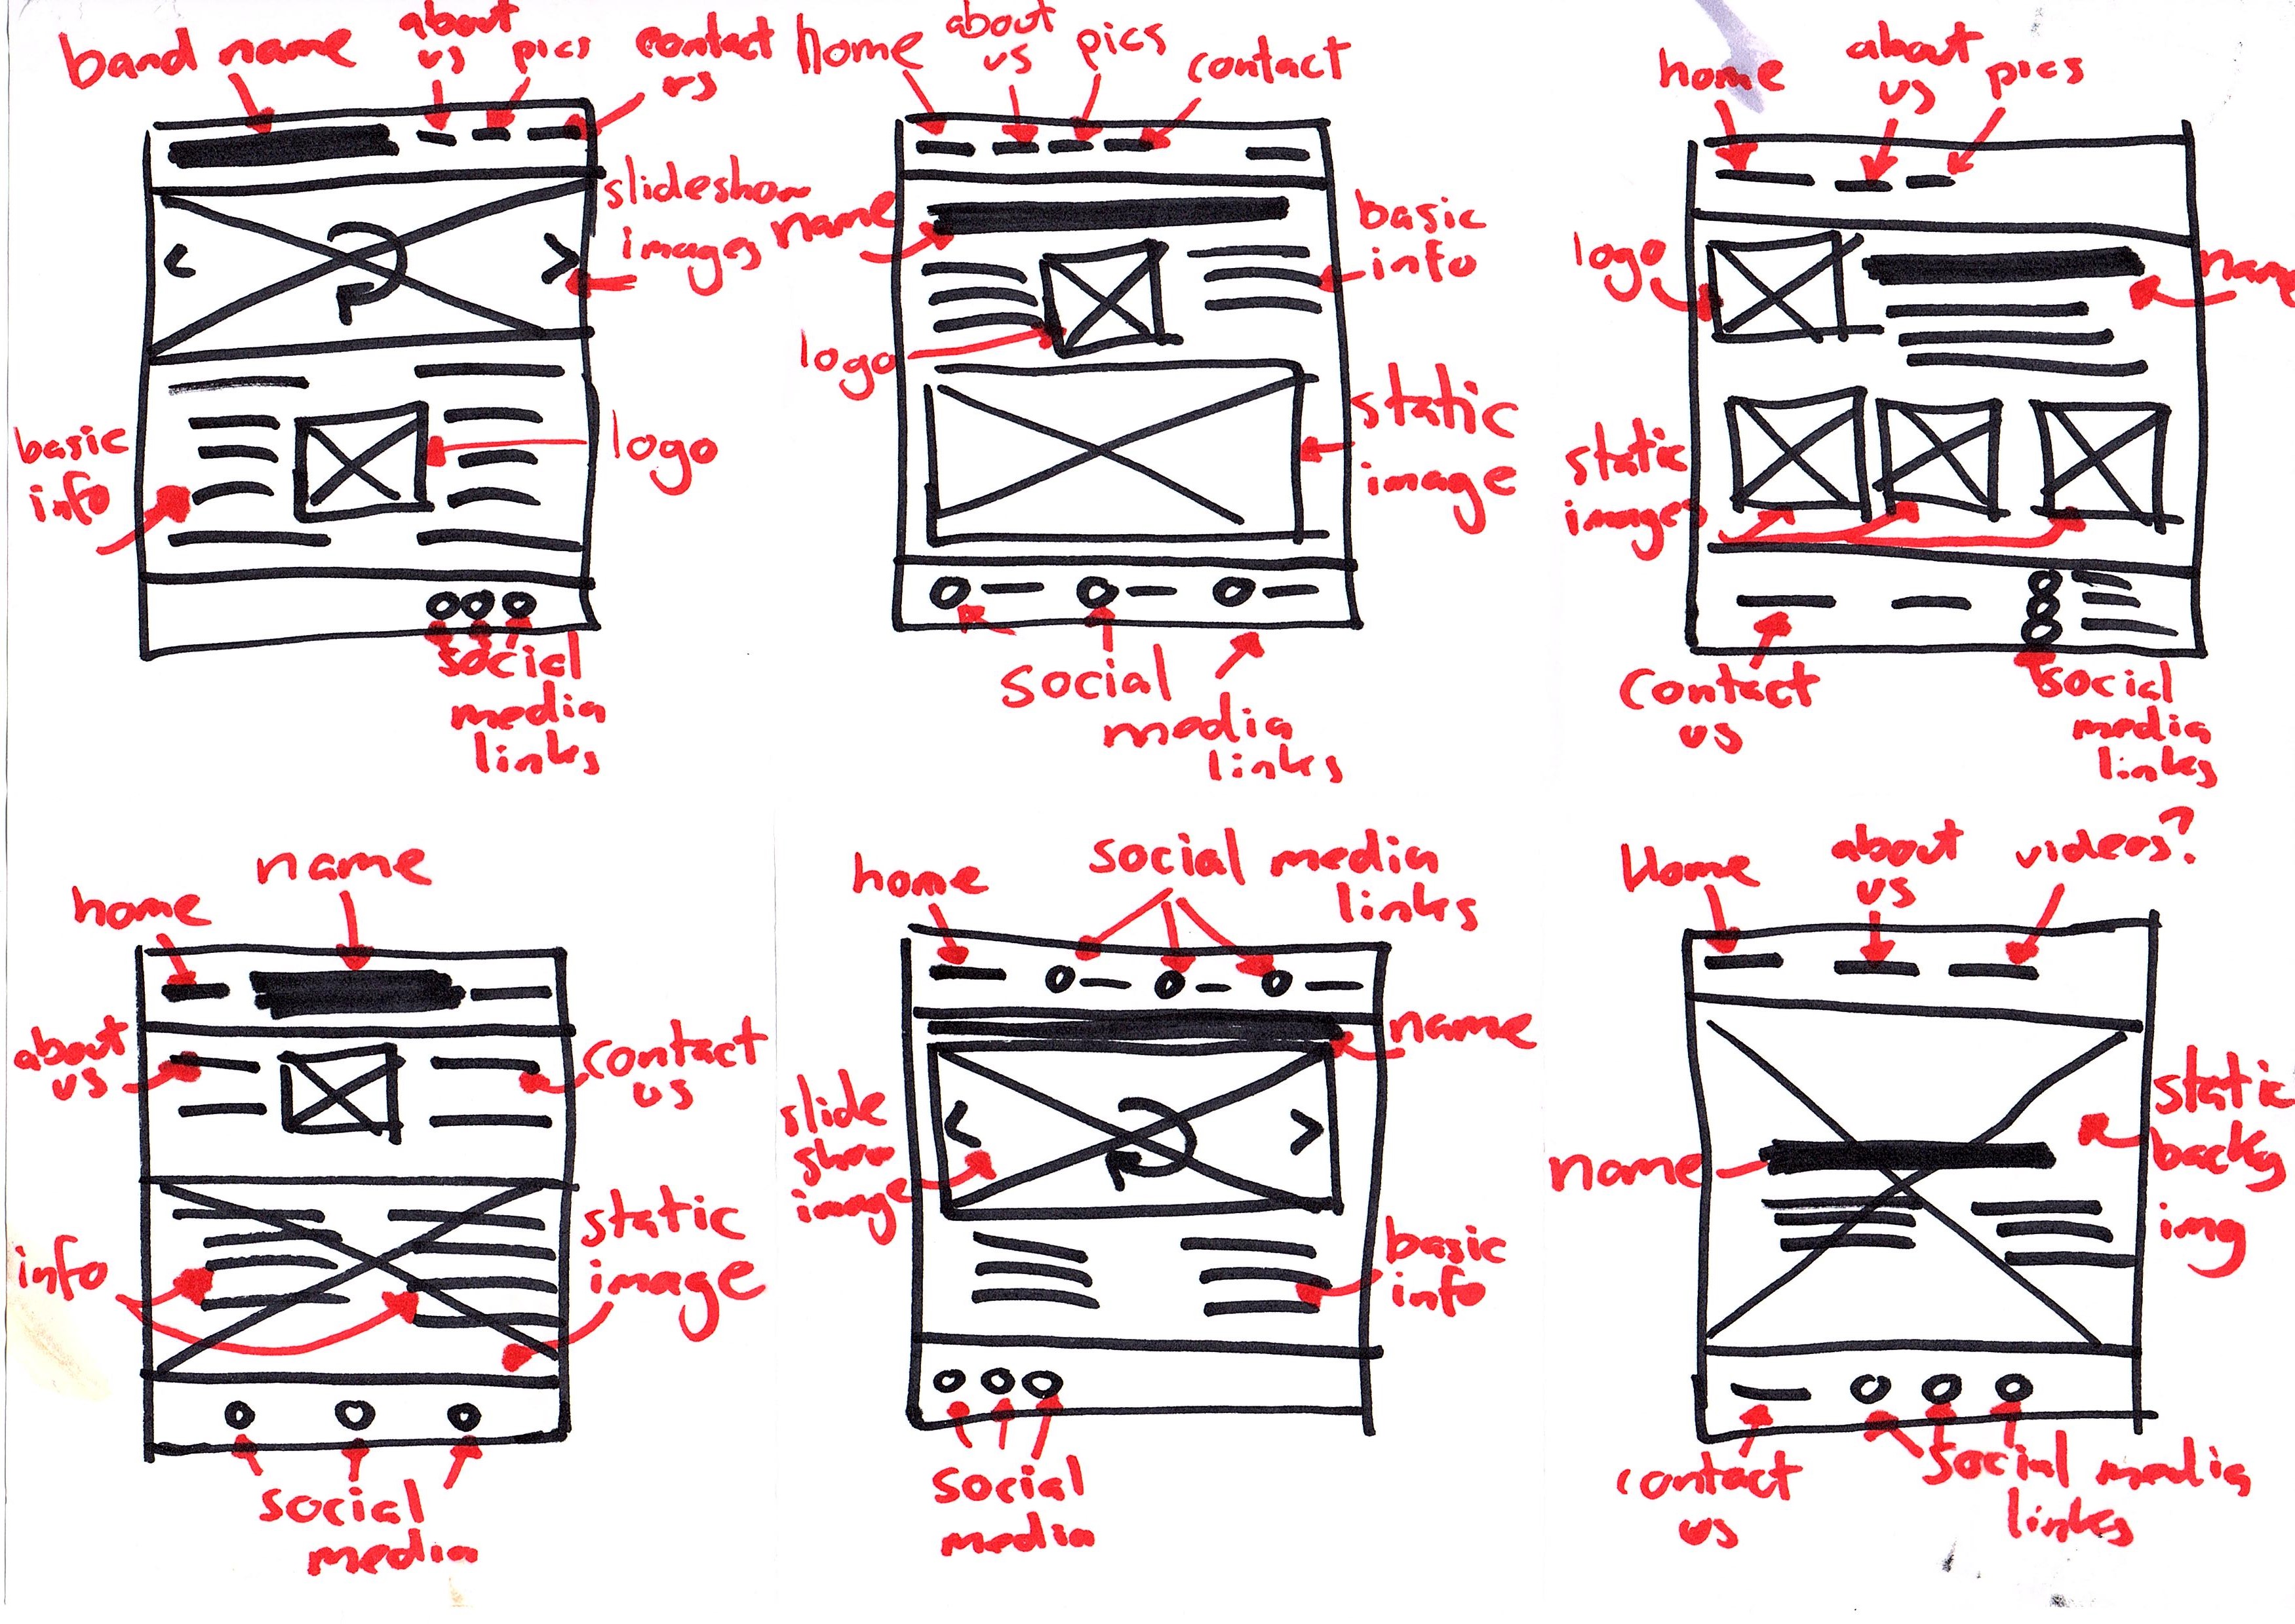 band name
about
us
pics
contact
us
slideshow
images
basic
info
logo
social
media
links
home
about
us
pics
contact
name
basic
info
logo
static
image
social
media
links
home
about
us
pics
logo
name
static
images
contact
us
social
media
links
name
home
about
us
contact
us
info
static
image
social
media
home
social media
links
name
slide
show
image
basic
info
social
media
Home
about
us
videos?
name
static
backg
img
contact
us
social media
links